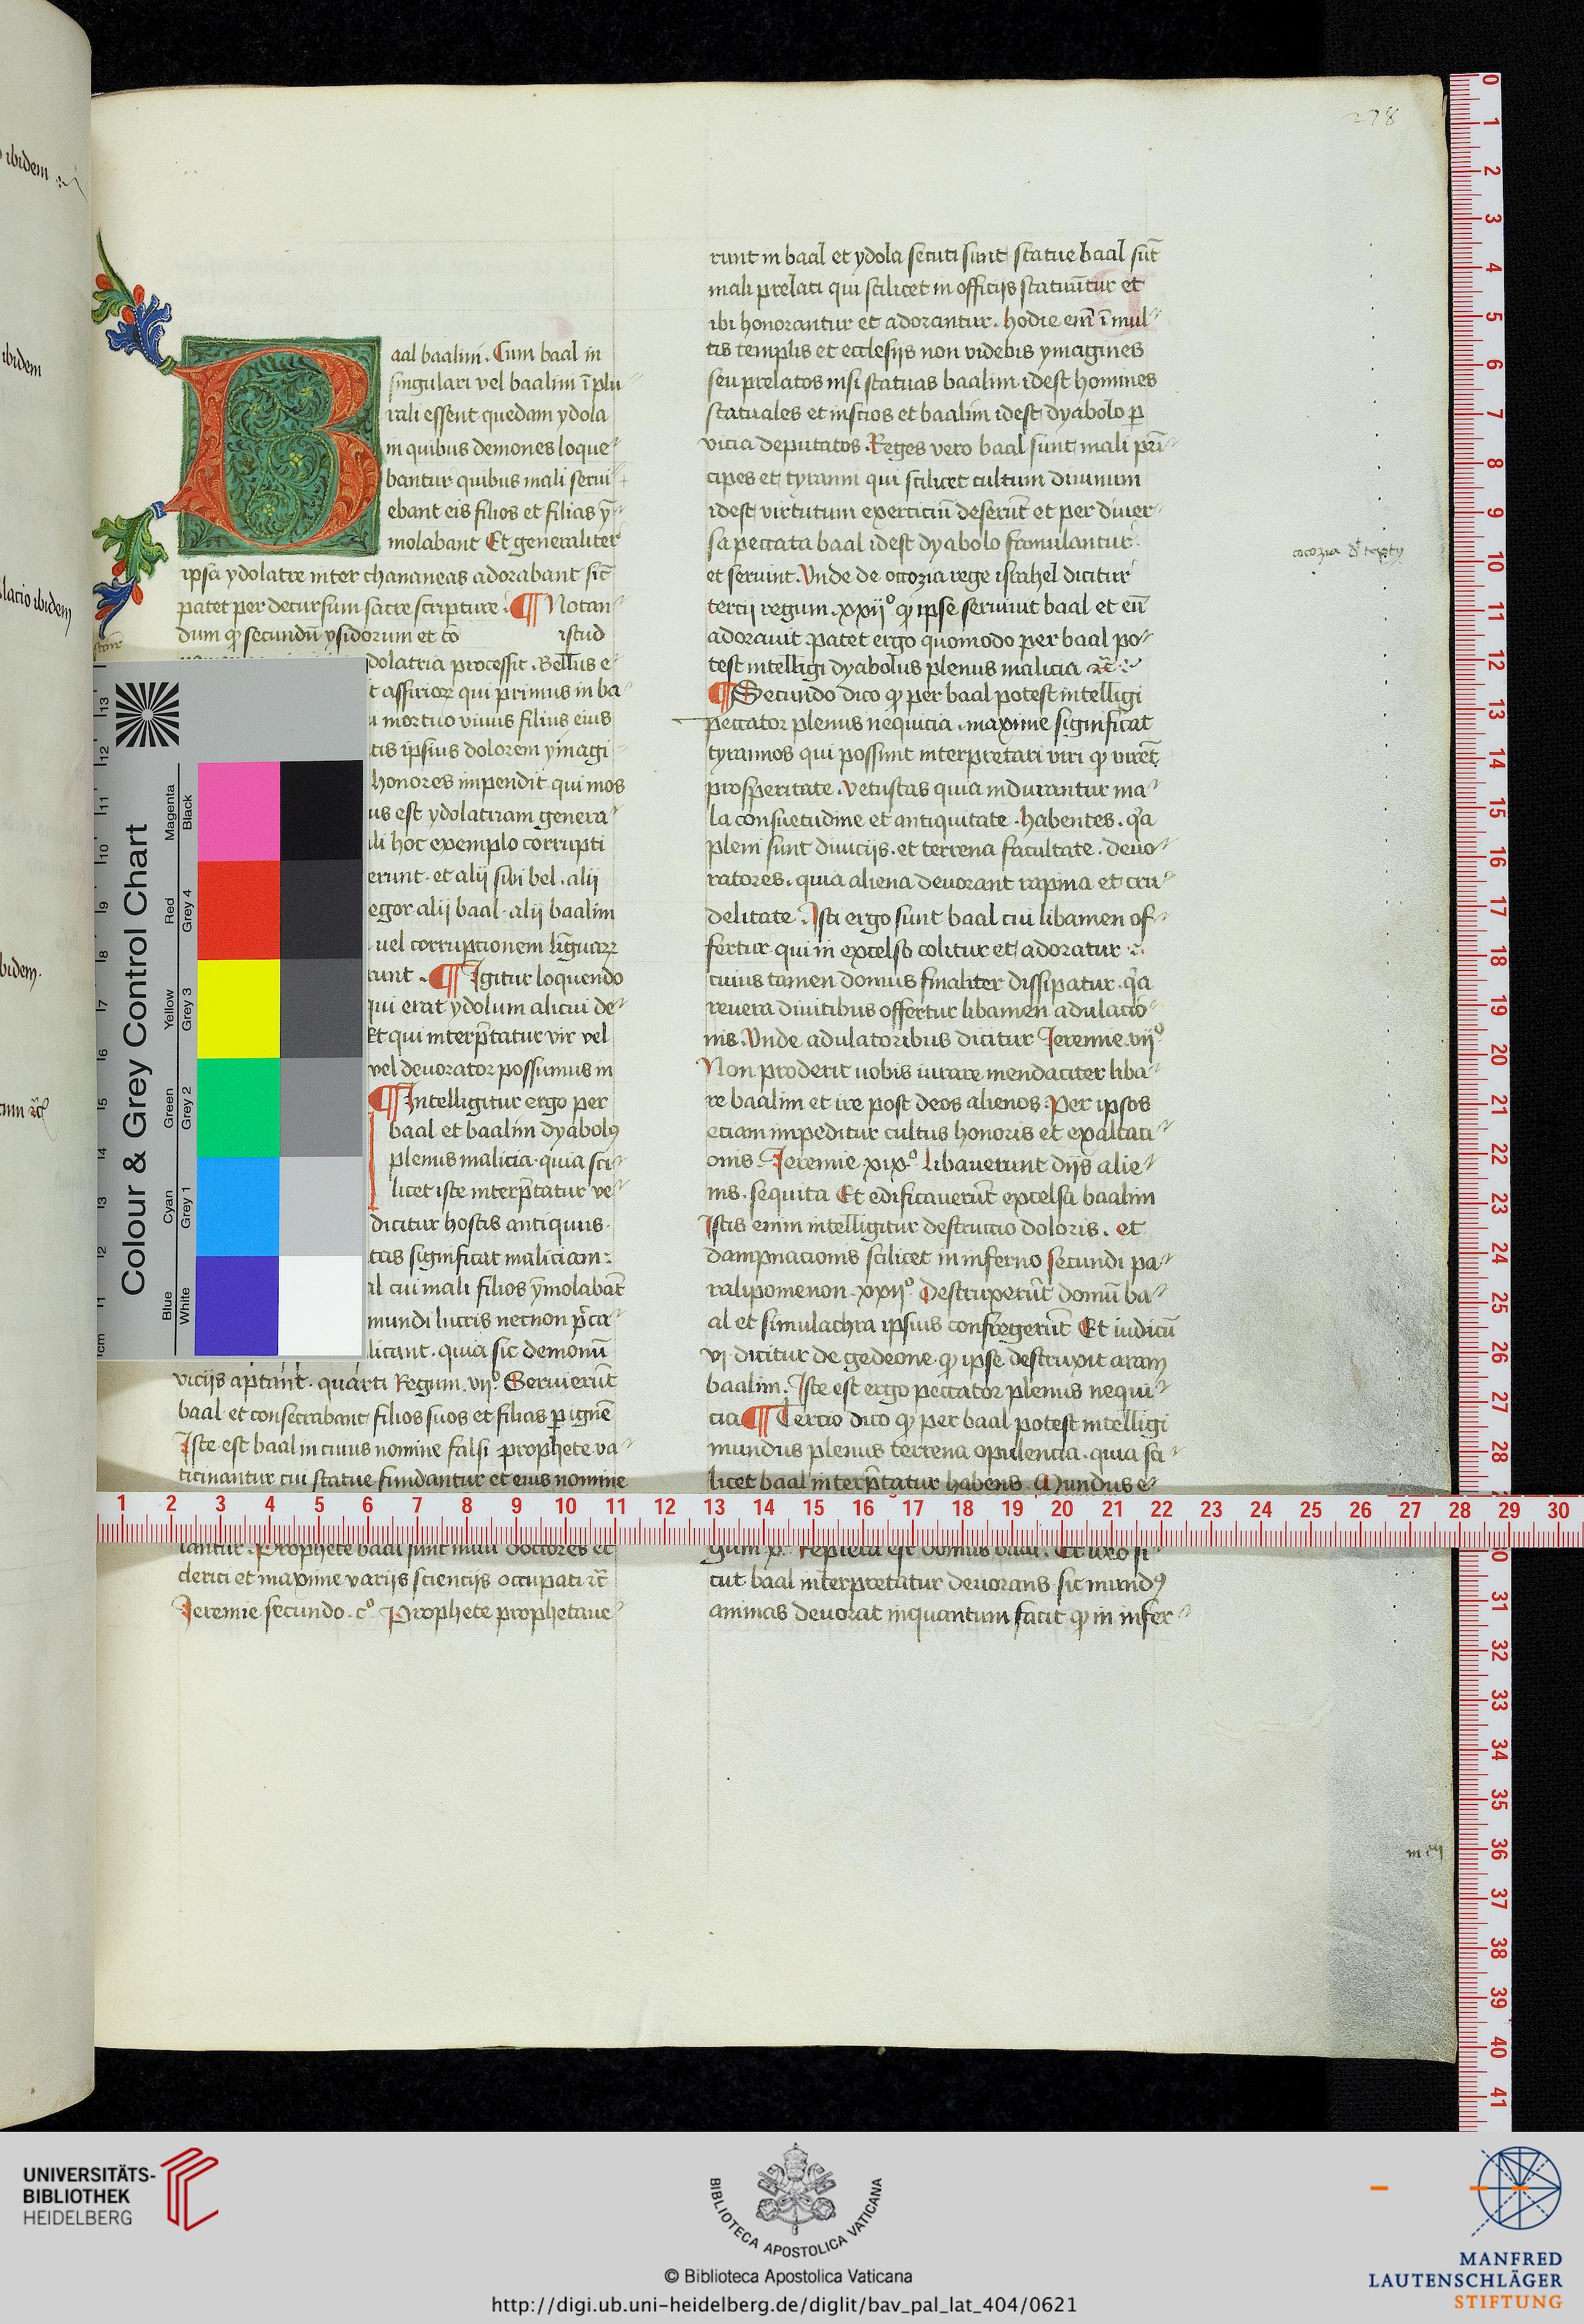 278
aal baalim. Cum baal in
singulari vel baalim ī plu
rali essent quedam ydola
in quibus demones loque
bantur quibus mali servi
ebant eis filios et filias ȳ
molabant Et generaliter
ipsa ydolatre inter chananeas adorabant sic̄
patet per decursum sacre scripture. ¶ Notan
dum ꝙ secundū ysidorum et istud
dolatria processit. Bellus e
t assirioꝝ qui primus in ba
mortuo vivus filius eius
tis ipsius dolorem ymagi
honores impendit qui mos
us est ydolatriam genera
li hoc exemplo corrupti
erunt. et alij sibi bel. alij
egor alij baal. alij baalim
vel corrupcionem linguaꝝ
runt. ¶ Igitur loquendo
qui erat ydolum alicui de
Et qui interp̄tatur vir vel
vel devorator possumus in
¶ Intelligitur ergo per
baal et baalim dyabolꝰ
plenus malicia. quia sci
licet iste interp̄tatur ve
dicitur hostis antiquus.
tas significat maliciam.
al cui mali filios ȳmolabāt
mundi lucris necnon
licant. quia sic demonū
viciis aptant. quarti Regum vijº. Servierūt
baal et consecrabant filios suos et filias ꝑ ignē
Iste est baal in cuius nomine falsi prophete va
ticinantur cui statue fundantur et eius nomine
lantur. Prophete baal sunt mali doctores et
clerici et maxime varijs sciencijs occupati ꝛc̄
Jeremie secundo. cº. Prophete prophetave
runt in baal et ydola secuti sunt statue baal sūt
mali prelati qui scilicet in officijs statuūtur et
ibi honorantur et adorantur. hodie enī ī mul
tis templis et ecclesijs non videbis ymagines
seu prelatos nisi statuas baalim idest homines
statuales et inscios et baalim idest dyabolo ꝑ
vicia deputatos. Reges vero baal sunt mali prī
cipes et tyranni qui scilicet cultum divinum
idest virtutum exerciciū deserūt et per diver
sa peccata baal idest dyabolo famulantur.
et serviūt. Unde de occozia rege israhel dicitur
tercij regum. xxijº ꝙ ipse servivit baal et eū
adoravit. patet ergo quomodo per baal po
test intelligi dyabolus plenus malicia ꝛc̄
¶ Secundo dico ꝙ per baal potest intelligi
peccator plenus nequicia. maxime significat
tyrannos qui possunt interpretari viri ꝙ virēt
prosperitate. vetustas quia indurantur ma
la consuetudine et antiquitate. habentes. qꝛ
pleni sunt divicijs. et terrena facultate. devo
ratores. quia aliena devorant rapina et cru
delitate. Isti ergo sunt baal cui libamen of
fertur qui in excelso colitur et adoratur.
cuius tamen domus finaliter dissipatur. qꝛ
revera divitibus offertur libamen adulacio
nis. Unde adulatoribus dicitur Jeremie vijº
Non proderit vobis iurare mendaciter liba
re baalim et ire post deos alienos. Per ipsos
etiam impeditur cultus honoris et exaltati
onis. Jeremie xixº. libaverunt dijs alie
nis. sequita Et edificaverūt excelsa baalim
Istis enim intelligitur destructio doloris. et
dampnacionis scilicet in inferno secundi pa
ralipomenon. xxijº Destruxerūt domū ba
al et simulachra ipsius confregerūt Et iudicū
vj dicitur de gedeone. ꝙ ipse destruxit aram
baalim. Iste est ergo peccator plenus nequi
cia ¶ Tercio dico ꝙ per baal potest intelligi
mundus plenus terrena opulencia. quia sci
licet baal interp̄tatur habens. Mundus e
gum x. repleta est domus baal. Et vero si
cut baal interpretatur devorans sic mundꝰ
animas devorat inquantum facit ꝙ in infer
ibidem
ibidem
lacio ibidem
Colour & Grey Control Chart
Magenta Black
Red Grey 4
Yellow Grey 3
Green Grey 2
Cyan Grey 1
Blue White
0 1 2 3 4 5 6 7 8 9 10 11 12 13 14 15 16 17 18 19 20 21 22 23 24 25 26 27 28 30 31 32 33 34 35 36 37 38 39 40 41
1 2 3 4 5 6 7 8 9 10 11 12 13 14 15 16 17 18 19 20 21 22 23 24 25 26 27 28 29 30
UNIVERSITÄTS-
BIBLIOTHEK
HEIDELBERG
BIBLIOTECA APOSTOLICA VATICANA
© Biblioteca Apostolica Vaticana
http://digi.ub.uni-heidelberg.de/diglit/bav_pal_lat_404/0621
MANFRED
LAUTENSCHLÄGER
STIFTUNG